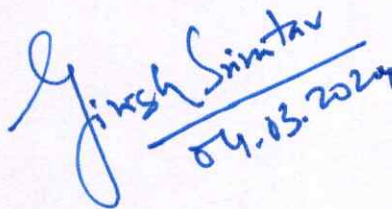 Girish Srivastav
04.03.2024